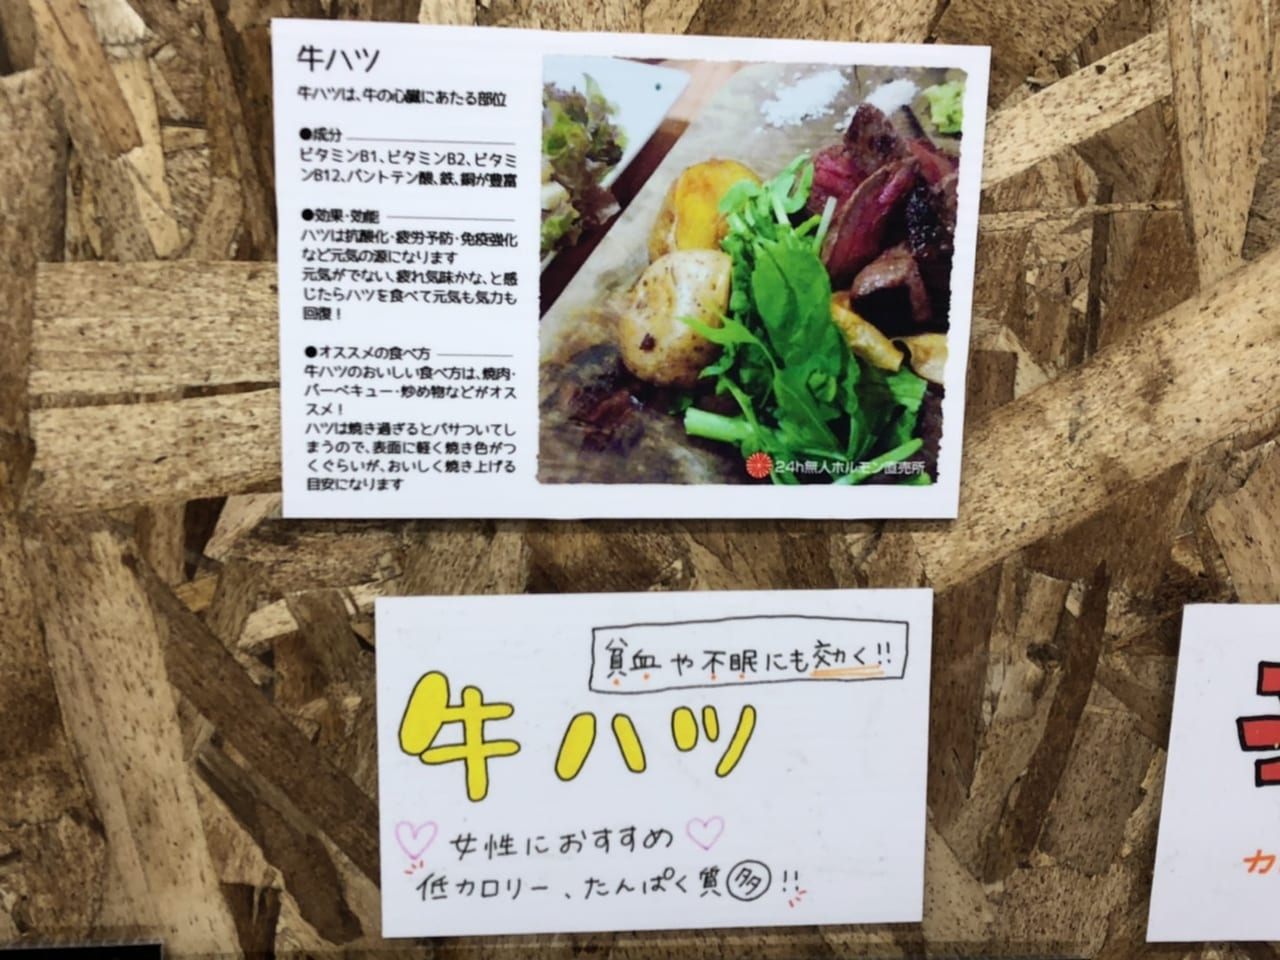 牛ハツ
牛ハツは、牛の心臓にあたる部位
●成分
ビタミンB1、ビタミンB2、ビタミ
ンB12、パントテン酸、鉄、銅が豊富
●効果・効能
ハツは抗酸化・疲労予防・免疫強化
など元気の源になります
元気がでない、疲れ気味かな、と感
じたらハツを食べて元気も気力も
回復！
●オススメの食べ方
牛ハツのおいしい食べ方は、焼肉・
バーベキュー・炒め物などがオス
スメ！
ハツは焼き過ぎるとパサついてし
まうので、表面に軽く焼き色がつ
くぐらいが、おいしく焼き上げる
目安になります
24h無人ホルモン直売所
貧血や不眠にも効く!!
牛ハツ
♡女性におすすめ♡
低カロリー、たんぱく質多!!
カ